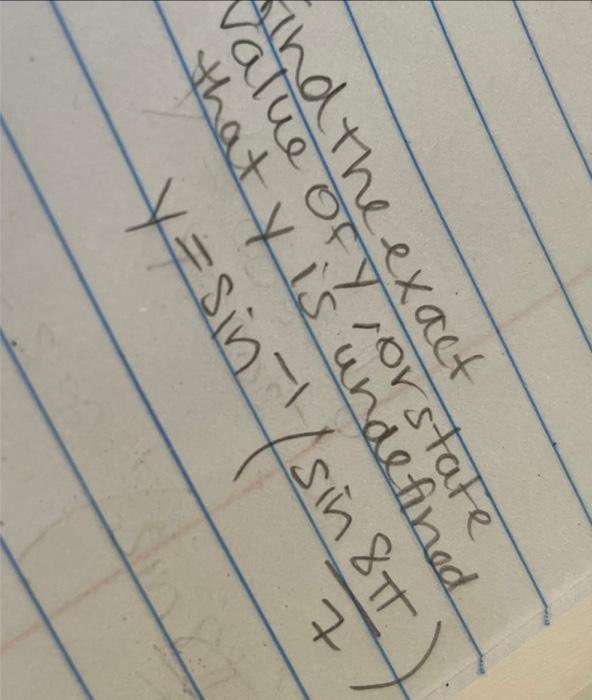 find the exact
value of y, or state
that y is undefined
y = sin⁻¹ (sin 8π/7)